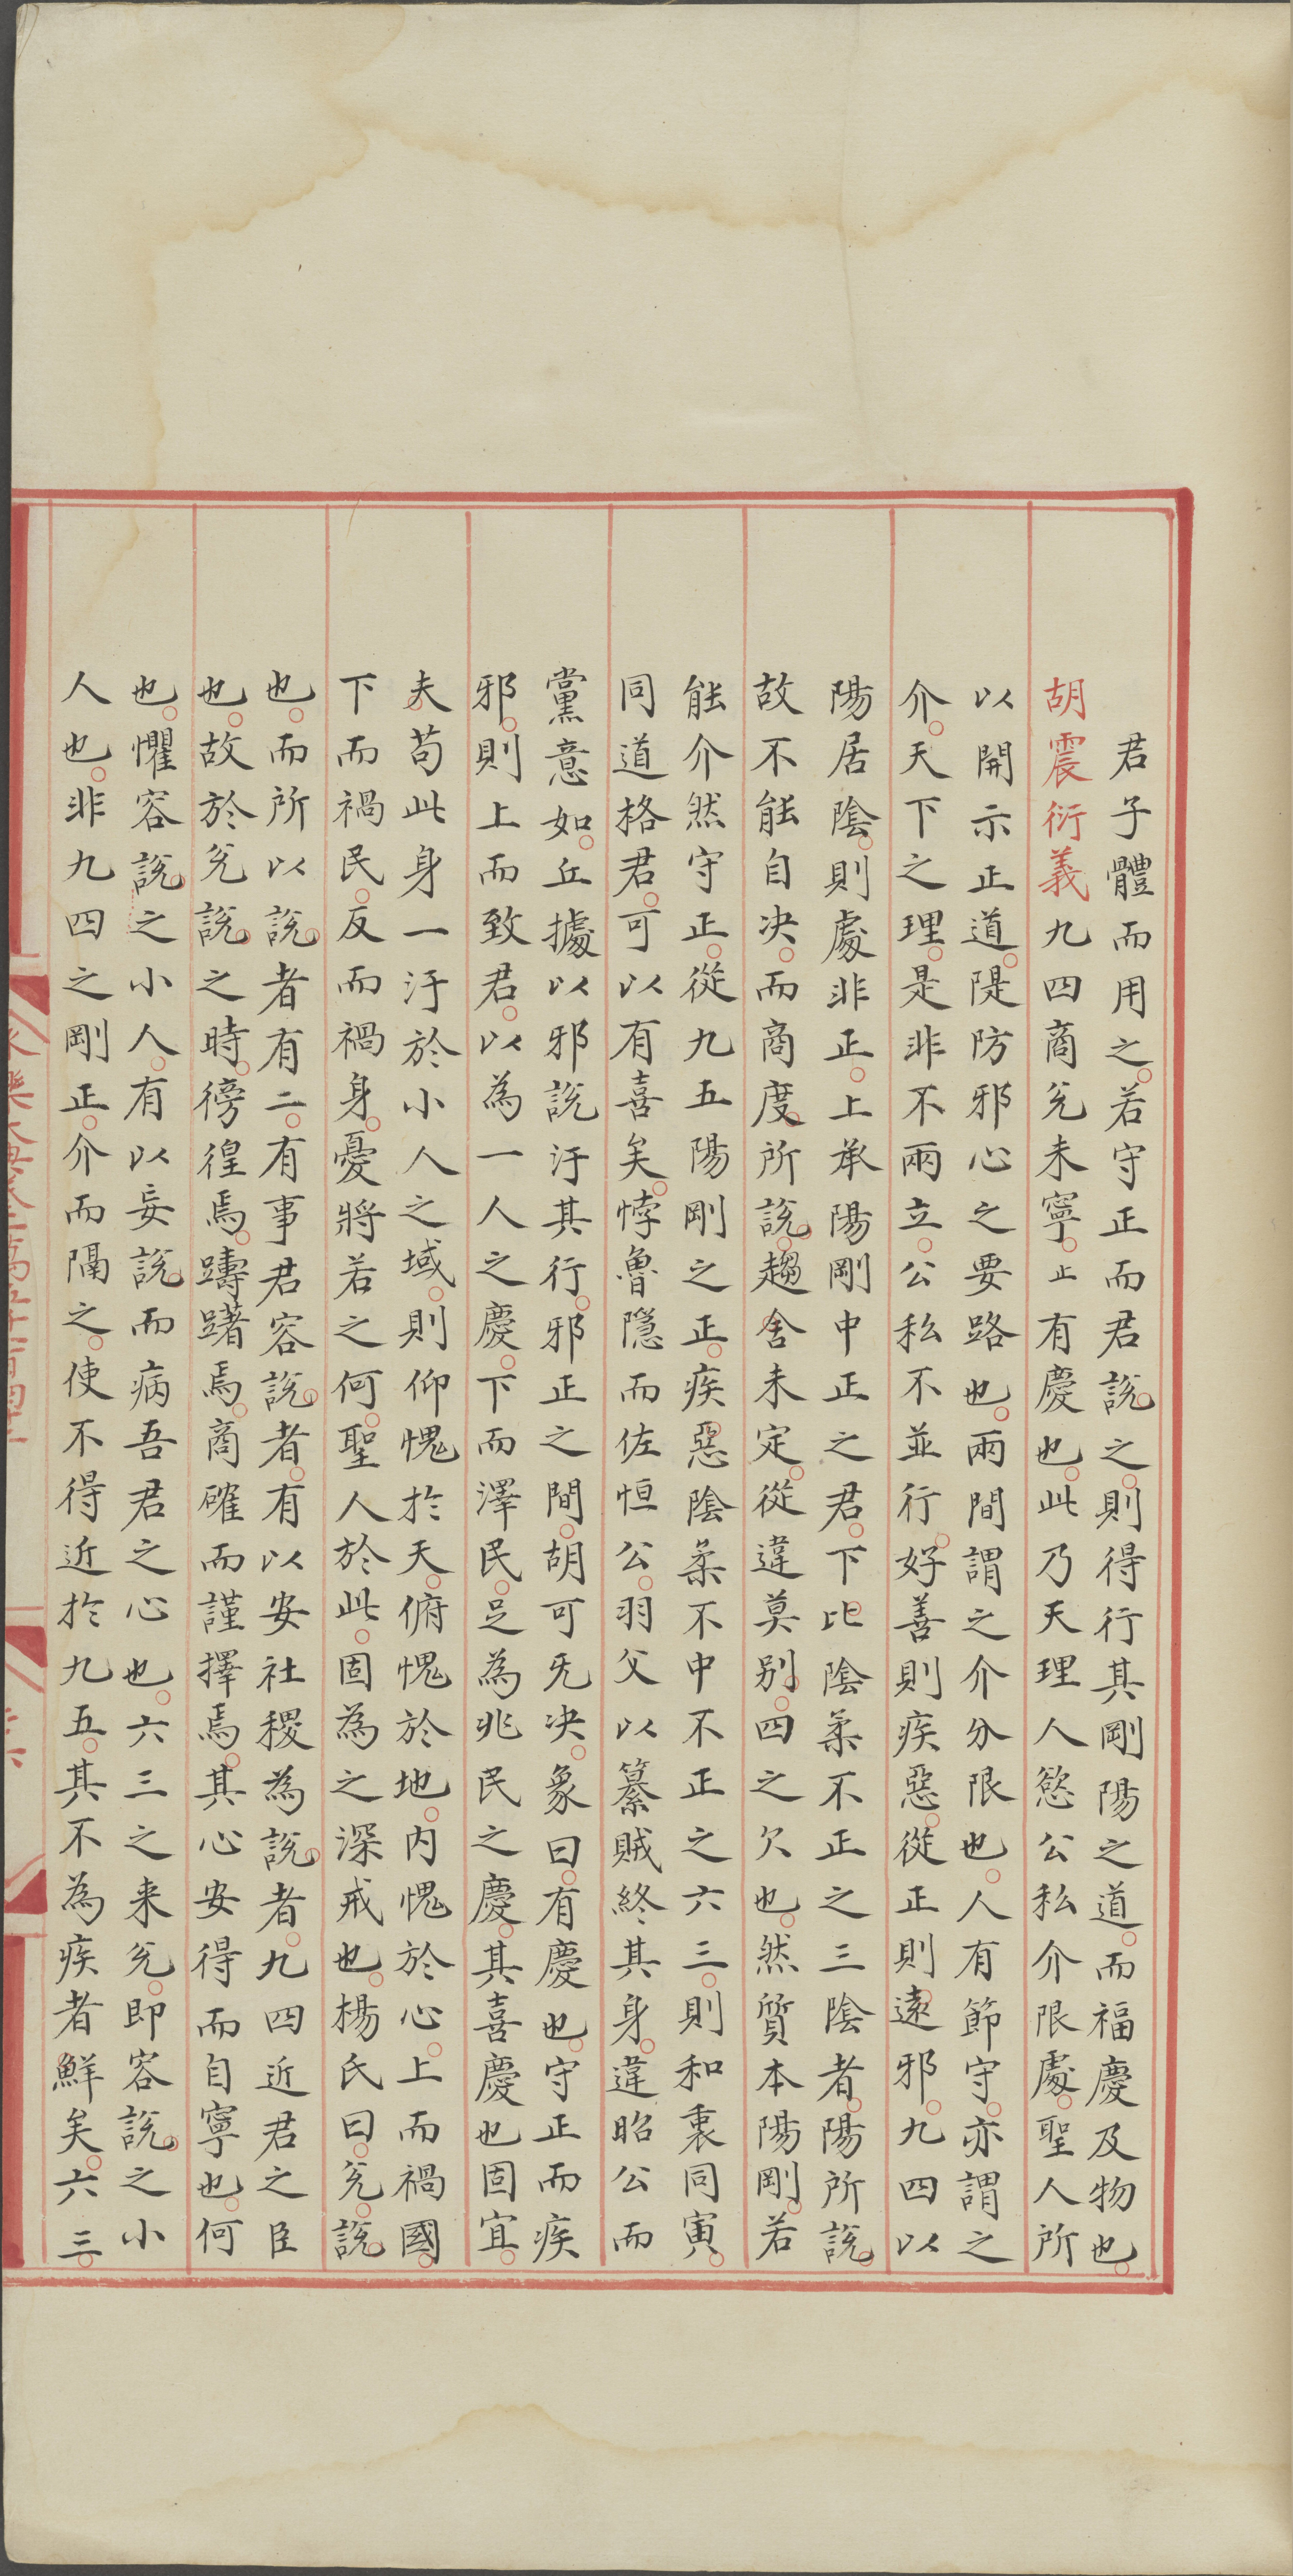 君子體而用之若守正而君說之則得行其剛陽之道而福慶及物也
胡震衍義九四商兊未寧正有慶也此乃天理人慾公私介限處聖人所
以開示正道隄防邪心之要路也兩間謂之介分限也人有節守亦謂之
介天下之理是非不兩立公私不並行好善則疾惡從正則遠邪九四以
陽居陰則處非正上承陽剛中正之君下比陰柔不正之三陰者陽所說
故不能自决而商度所說趨舍未定從違莫别四之欠也然質本陽剛若
能介然守正從九五陽剛之正疾惡陰柔不中不正之六三則和衷同寅
同道格君可以有喜矣悖魯隱而佐恒公羽父以篡賊終其身違昭公而
黨意如丘據以邪說汙其行邪正之間胡可旡决象曰有慶也守正而疾
邪則上而致君以為一人之慶下而澤民足為兆民之慶其喜慶也固宜
夫苟此身一汙於小人之域則仰愧於天俯愧於地内愧於心上而禍國
下而禍民反而禍身憂將若之何聖人於此固為之深戒也楊氏曰兊說
也而所以說者有二有事君容說者有以安社稷為說者九四近君之臣
也故於兊說之時徬徨焉躊躇焉商確而謹擇焉其心安得而自寧也何
也懼容說之小人有以妄說而病吾君之心也六三之来兊即容說之小
人也非九四之剛正介而隔之使不得近於九五其不為疾者鮮矣六三